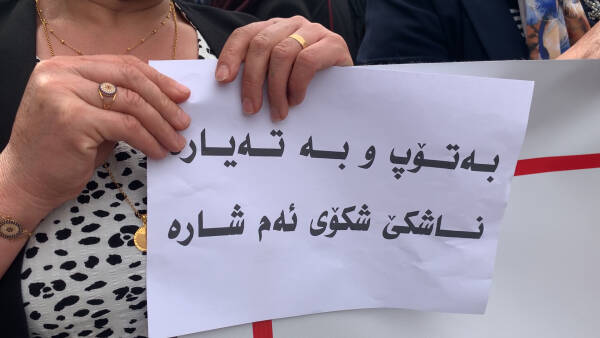 بەتۆپ و بە تەیارە
ناشکێ شکۆی ئەم شارە